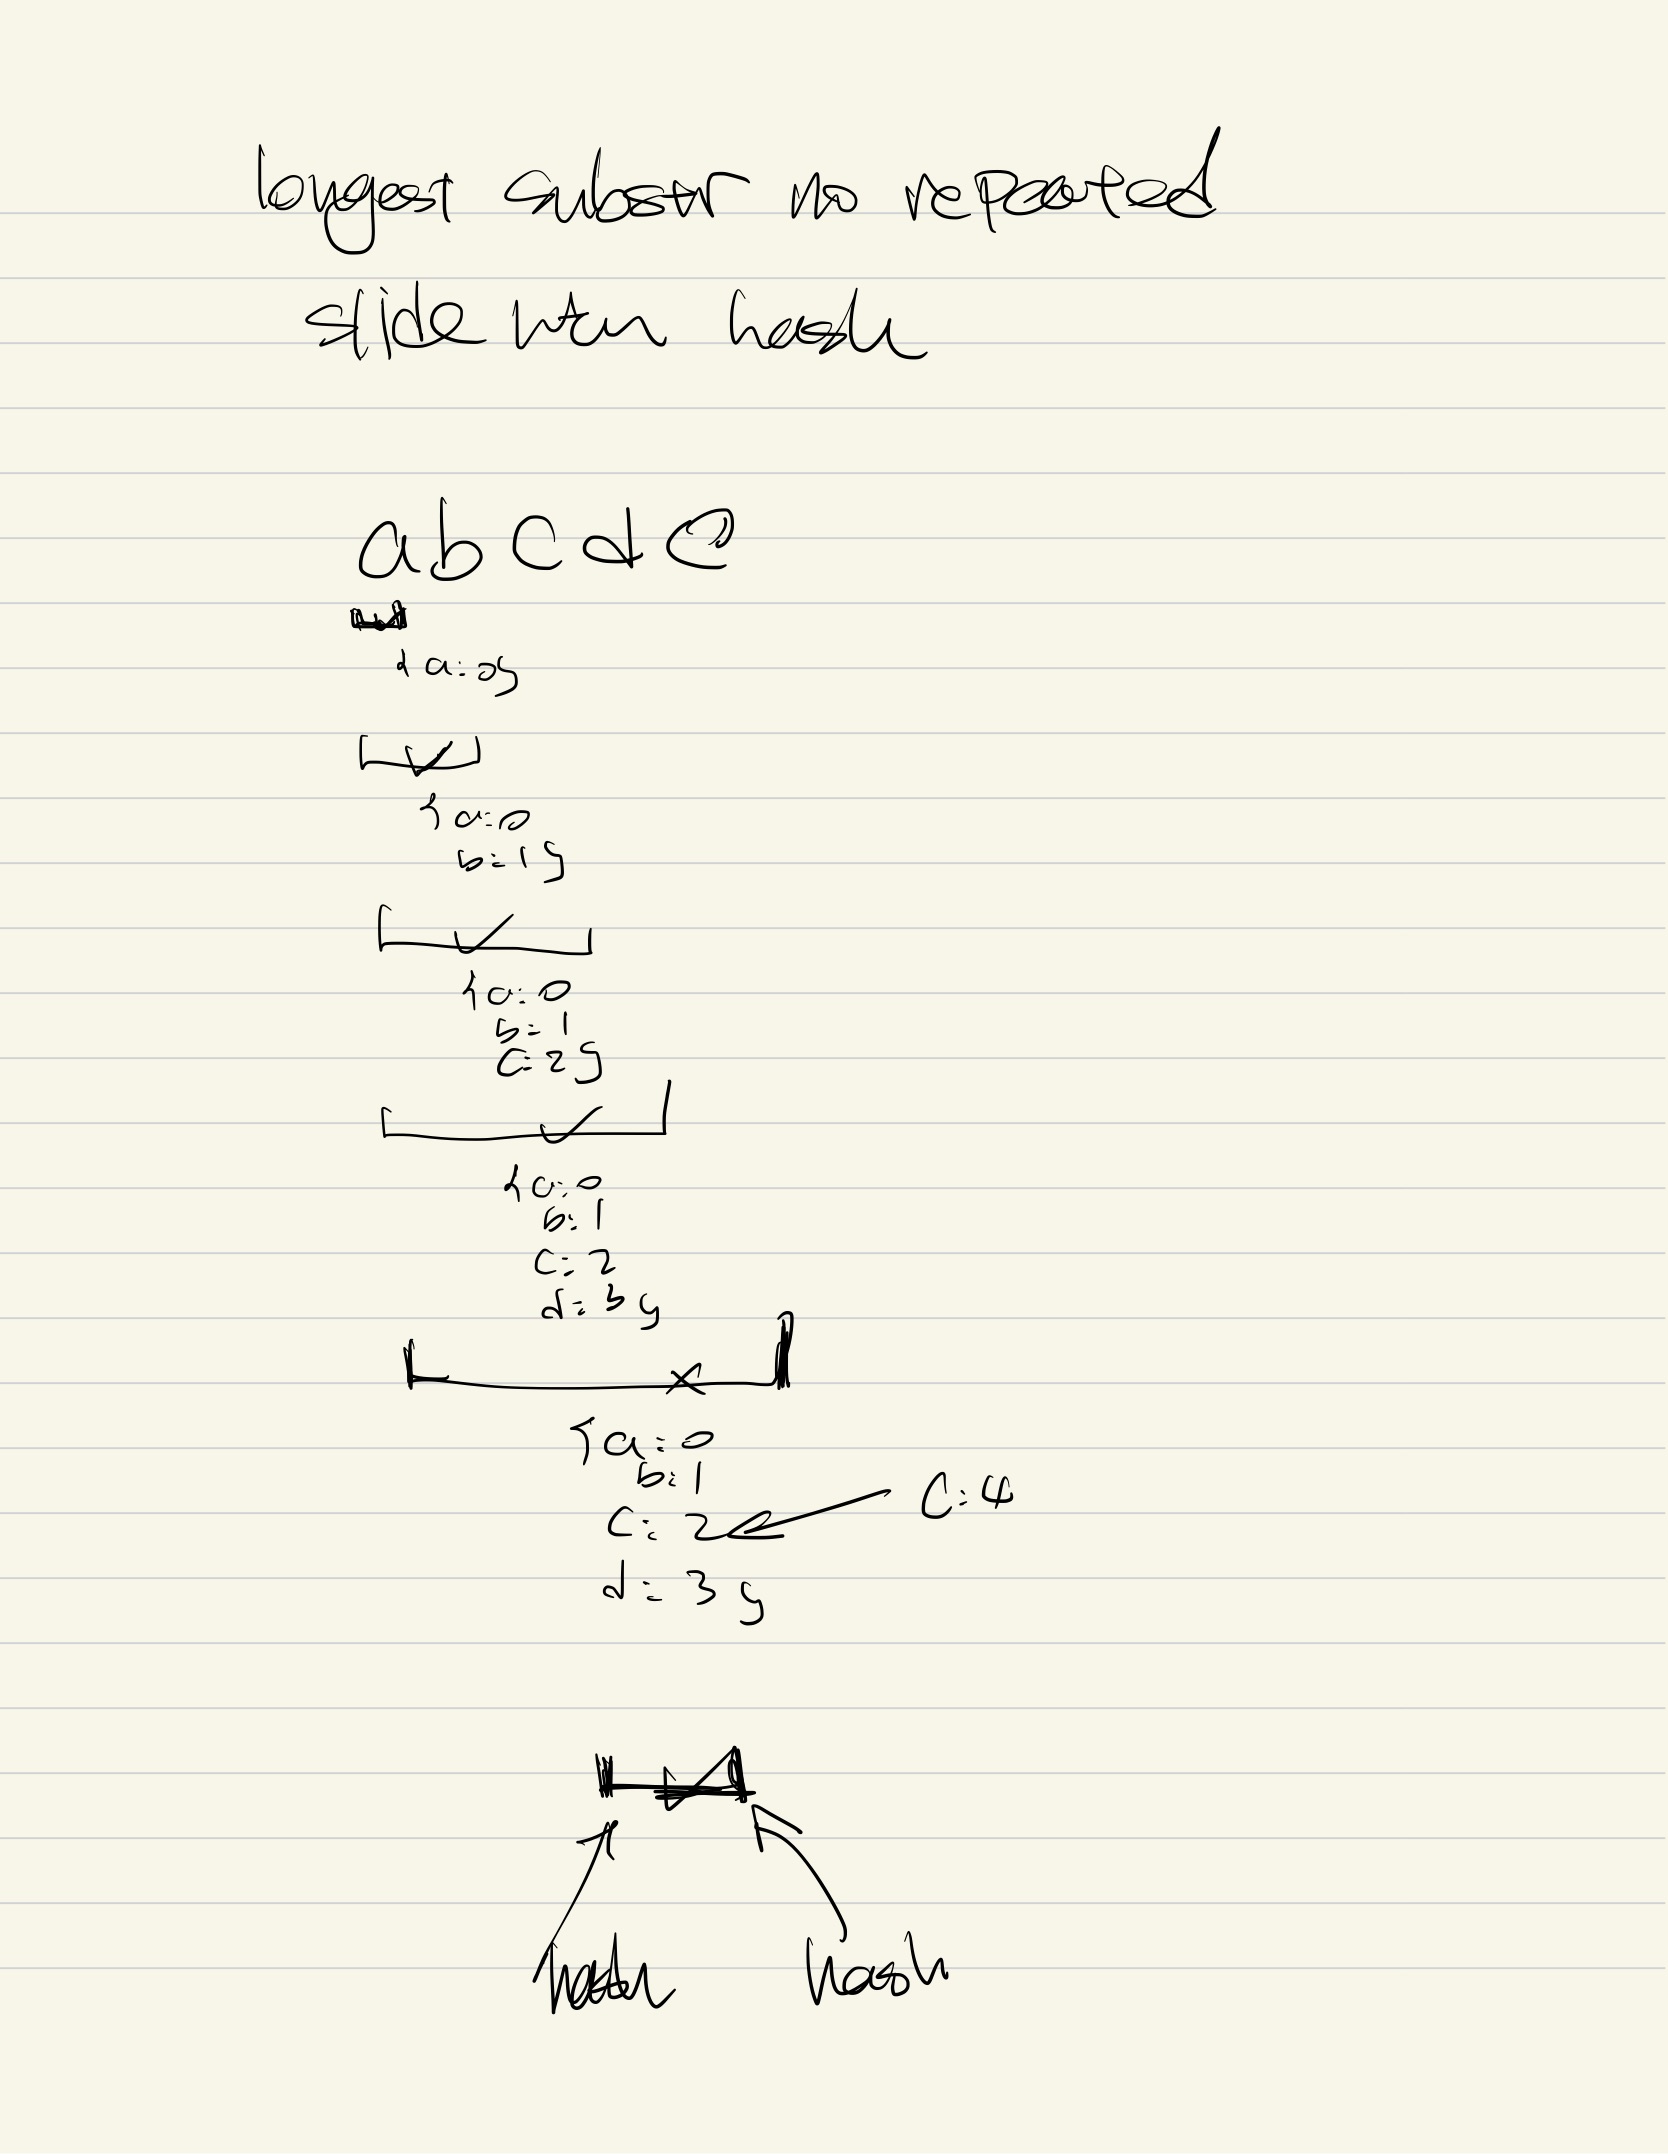 longest substr no repeated
slide wtn hash
a b c d c
{ a: 0 }
{ a: 0
b: 1 }
{ a: 0
b: 1
c: 2 }
{ a: 0
b: 1
c: 2
d: 3 }
{ a: 0
b: 1
c: 2 C: 4
d: 3 }
hash hash